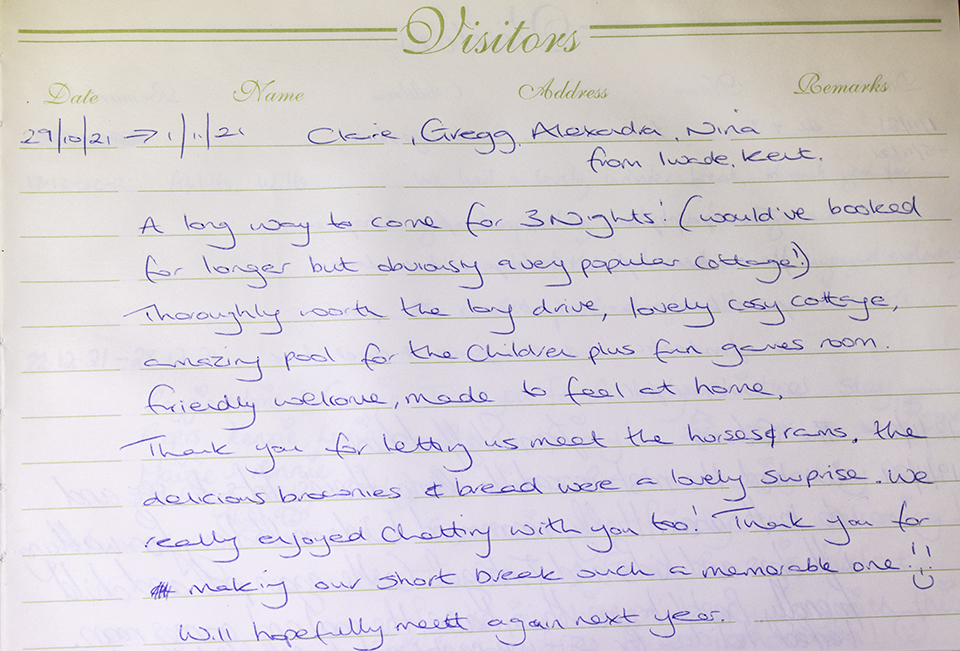 Visitors
Date Name Address Remarks
29/10/21 → 1/11/21 Claire, Gregg, Alexandra, Nina
from Iwade, Kent.
A long way to come for 3 Nights! (would've booked
for longer but obviously a very popular cottage!)
Thoroughly worth the long drive, lovely cosy cottage,
amazing pool for the Children plus fun games room.
friendly welcome, made to feel at home,
Thank you for letting us meet the horses & rams, the
delicious brownies & bread were a lovely surprise. We
really enjoyed chatting with you too! Thank you for
making our short break such a memorable one!!
Will hopefully meet again next year.